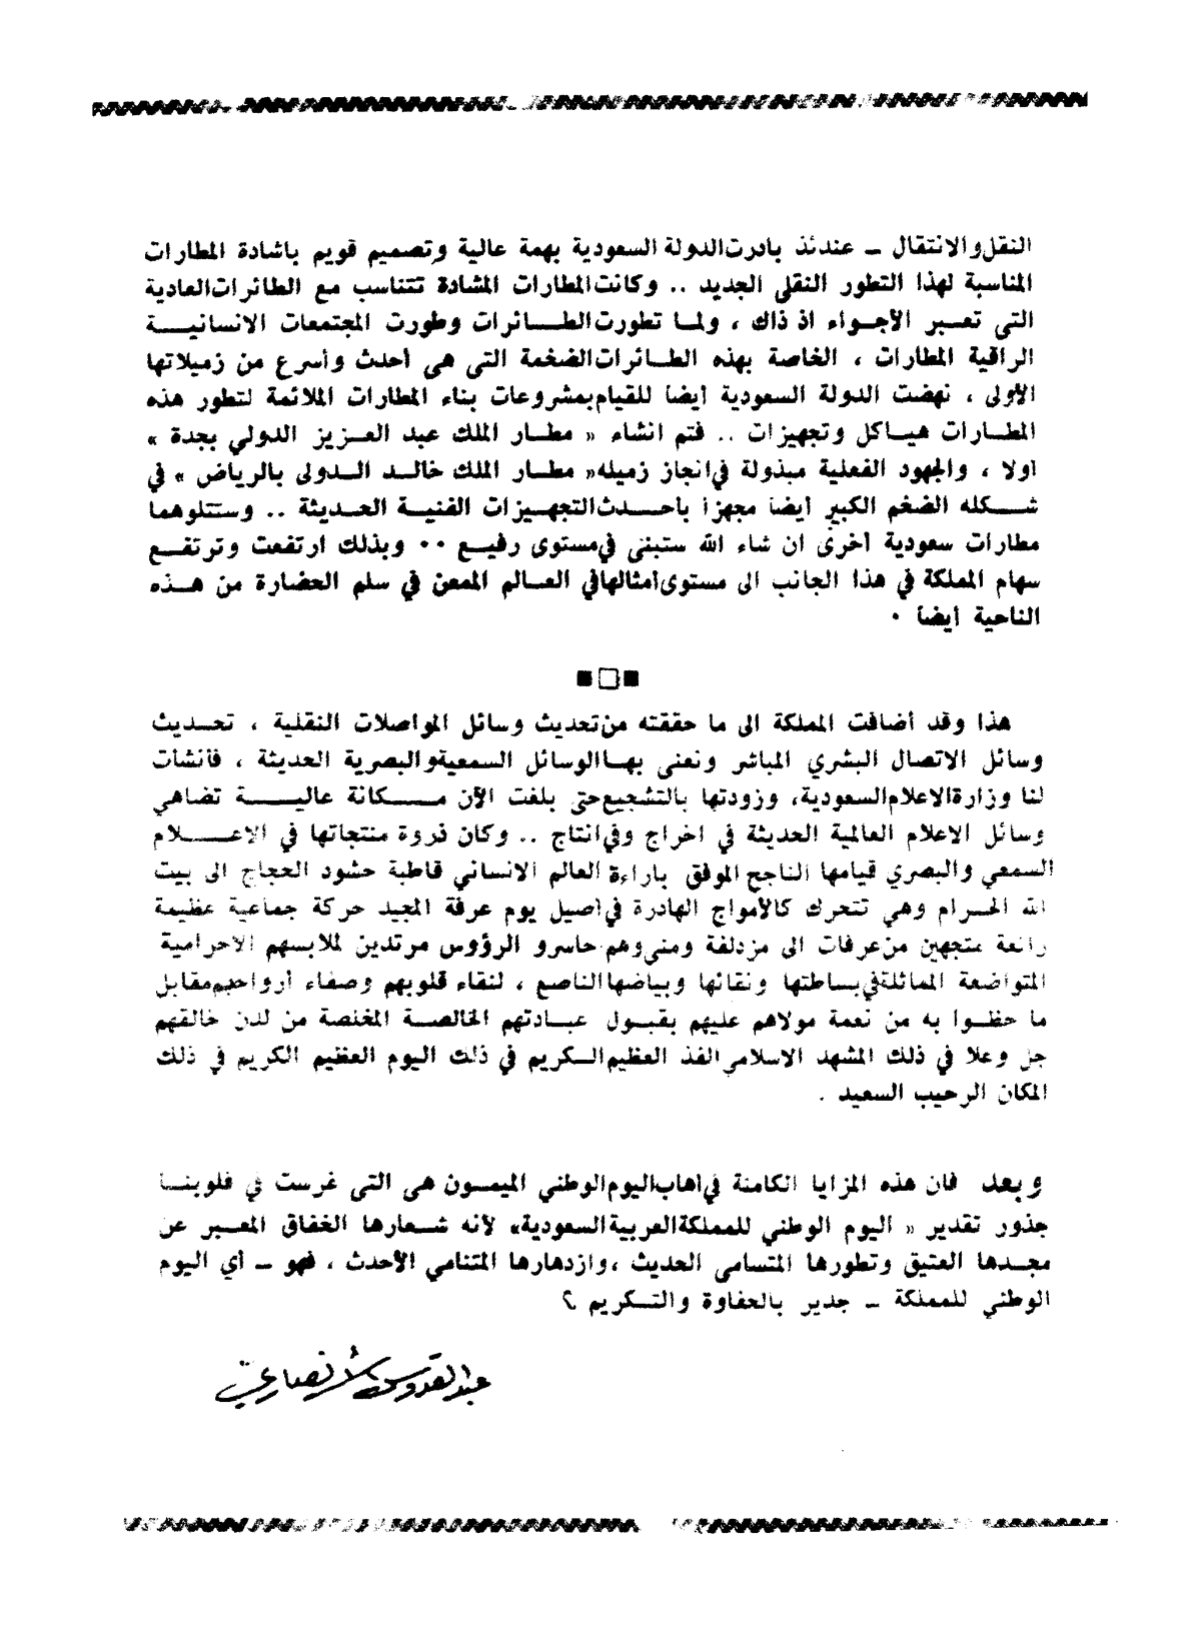 النقل والانتقال ـ عندئذ بادرت الدولة السعودية بهمة عالية وتصميم قويم باشادة المطارات
المناسبة لهذا التطور النقلي الجديد .. وكانت المطارات المشادة تتناسب مع الطائرات العادية
التي تعبر الأجواء اذ ذاك ، ولما تطورت الطائرات وطورت المجتمعات الانسانية
الراقية المطارات ، الخاصة بهذه الطائرات الضخمة التي هي أحدث وأسرع من زميلاتها
الأولى ، نهضت الدولة السعودية أيضا للقيام بمشروعات بناء المطارات الملائمة لتطور هذه
المطارات هياكل وتجهيزات .. فتم انشاء « مطار الملك عبد العزيز الدولي بجدة »
أولا ، والجهود الفعلية مبذولة في انجاز زميله « مطار الملك خالد الدولى بالرياض » في
شكله الضخم الكبير أيضا مجهزا بأحدث التجهيزات الفنية الحديثة .. وستتلوهما
مطارات سعودية أخرى ان شاء الله ستبنى في مستوى رفيع .. وبذلك ارتفعت وترتفع
سهام المملكة في هذا الجانب الى مستوى أمثالها في العالم الممعن في سلم الحضارة من هذه
الناحية أيضا .
■□■
هذا وقد أضافت المملكة الى ما حققته من تحديث وسائل المواصلات النقلية ، تحديث
وسائل الاتصال البشري المباشر ونعنى بها الوسائل السمعية والبصرية الحديثة ، فأنشأت
لنا وزارة الاعلام السعودية، وزودتها بالتشجيع حتى بلغت الآن مكانة عالية تضاهي
وسائل الاعلام العالمية الحديثة في اخراج وفي انتاج .. وكان ذروة منتجاتها في الاعلام
السمعي والبصري قيامها الناجح الموفق باراءة العالم الانساني قاطبة حشود الحجاج الى بيت
الله الحرام وهي تتحرك كالأمواج الهادرة في أصيل يوم عرفة المجيد حركة جماعية عظيمة
رائعة متجهين من عرفات الى مزدلفة ومنى وهم حاسرو الرؤوس مرتدين لملابسهم الاحرامية
المتواضعة المماثلة في بساطتها ونقائها وبياضها الناصع ، لنقاء قلوبهم وصفاء أرواحهم مقابل
ما حظوا به من نعمة مولاهم عليهم بقبول عبادتهم الخالصة المخلصة من لدن خالقهم
جل وعلا في ذلك المشهد الاسلامي الفذ العظيم الكريم في ذلك اليوم العظيم الكريم في ذلك
المكان الرحيب السعيد .
وبعد فان هذه المزايا الكامنة في اهاب اليوم الوطني الميمون هي التي غرست في قلوبنا
جذور تقدير « اليوم الوطني للمملكة العربية السعودية» لأنه شعارها الخفاق المعبر عن
مجدها العتيق وتطورها المتسامى الحديث ، وازدهارها المتنامي الأحدث ، فهو ـ أي اليوم
الوطني للمملكة ـ جدير بالحفاوة والتكريم ؟
عبد القدوس الأنصاري